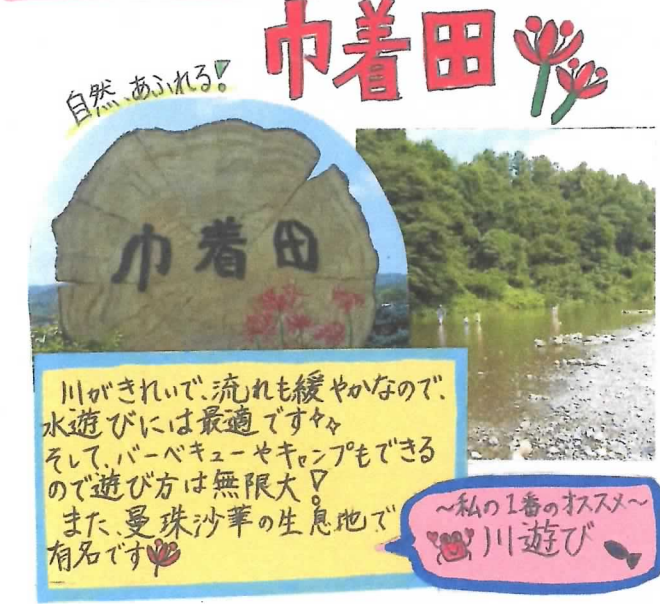 巾着田
自然、あふれる!
巾着田
川がきれいで、流れも緩やかなので、
水遊びには最適です
そして、バーベキューやキャンプもできる
ので遊び方は無限大!
また、曼珠沙華の生息地で
有名です
~私の1番のオススメ~
川遊び